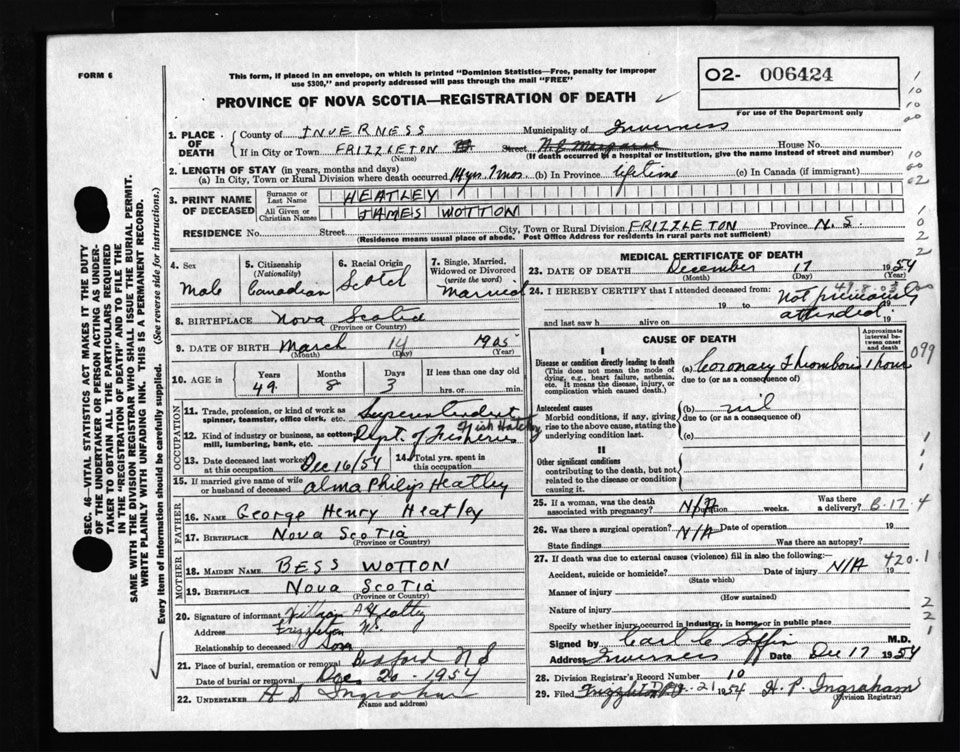 FORM 6
This form, if placed in an envelope, on which is printed "Dominion Statistics—Free, penalty for improper
use $300," and properly addressed will pass through the mail "FREE"
O2- 006424
For use of the Department only
PROVINCE OF NOVA SCOTIA—REGISTRATION OF DEATH
1. PLACE OF DEATH
County of INVERNESS Municipality of Inverness
If in City or Town FRIZZLETON Street House No.
(Name) (If death occurred in a hospital or institution, give the name instead of street and number)
2. LENGTH OF STAY (in years, months and days)
(a) In City, Town or Rural Division where death occurred 14 yrs. 7 mos. (b) In Province lifetime (c) In Canada (if immigrant)
3. PRINT NAME OF DECEASED
Surname or Last Name HEATLEY
All Given or Christian Names JAMES WOTTON
RESIDENCE No. Street City, Town or Rural Division FRIZZLETON Province N. S.
(Residence means usual place of abode. Post Office Address for residents in rural parts not sufficient)
SEC. 46—VITAL STATISTICS ACT MAKES IT THE DUTY
OF THE UNDERTAKER OR PERSON ACTING AS UNDER-
TAKER TO OBTAIN ALL THE PARTICULARS REQUIRED
IN THE "REGISTRATION OF DEATH" AND TO FILE THE
SAME WITH THE DIVISION REGISTRAR WHO SHALL ISSUE THE BURIAL PERMIT.
WRITE PLAINLY WITH UNFADING INK. THIS IS A PERMANENT RECORD.
Every item of Information should be carefully supplied. (See reverse side for instructions.)
4. Sex
Male
5. Citizenship
(Nationality)
Canadian
6. Racial Origin
Scotch
7. Single, Married,
Widowed or Divorced
(write the word)
Married
8. BIRTHPLACE Nova Scotia
(Province or Country)
9. DATE OF BIRTH March 14 1905
(Month) (Day) (Year)
10. AGE in Years Months Days If less than one day old
49 8 3 hrs. or min.
OCCUPATION
11. Trade, profession, or kind of work as
spinner, teamster, office clerk, etc. Superintendent
12. Kind of industry or business, as cotton
mill, lumbering, bank, etc. Dept. of Fisheries Fish Hatchery
13. Date deceased last worked
at this occupation Dec 16/54
14. Total yrs. spent in
this occupation
15. If married give name of wife
or husband of deceased Alma Philips Heatley
FATHER
16. NAME George Henry Heatley
17. BIRTHPLACE Nova Scotia
(Province or Country)
MOTHER
18. MAIDEN NAME BESS WOTTON
19. BIRTHPLACE Nova Scotia
(Province or Country)
20. Signature of informant Heatley
Address Frizzleton N.S.
Relationship to deceased Son
21. Place of burial, cremation or removal Bedford N S
Date of burial or removal Dec 20 - 1954
22. UNDERTAKER H D Ingraham
(Name and address)
MEDICAL CERTIFICATE OF DEATH
23. DATE OF DEATH December 17 1954
(Month) (Day) (Year)
24. I HEREBY CERTIFY that I attended deceased from: 49.8.03
19 to 19
and last saw h alive on 19
Not previously
attended.
CAUSE OF DEATH
Approximate
interval between
onset and death
I
Disease or condition directly leading to death
(This does not mean the mode of
dying, e.g., heart failure, asthenia,
etc. It means the disease, injury, or
complication which caused death.)
(a) Coronary Thrombosis 1 hour 099
due to (or as a consequence of)
Antecedent causes
Morbid conditions, if any, giving
rise to the above cause, stating the
underlying condition last.
(b) nil
due to (or as a consequence of)
(c)
II
Other significant conditions
contributing to the death, but not
related to the disease or condition
causing it.
25. If a woman, was the death
associated with pregnancy? Duration weeks. Was there
a delivery? B-17.4
26. Was there a surgical operation? N/A Date of operation 19
State findings Was there an autopsy?
27. If death was due to external causes (violence) fill in also the following:—
Accident, suicide or homicide? Date of injury N/A 19 420.1
(State which)
Manner of injury
(How sustained)
Nature of injury
Specify whether injury occurred in industry, in home, or in public place
Signed by Carl C M.D.
Address Inverness Date Dec 17 1954
28. Division Registrar's Record Number 10
29. Filed 21 1954 H. P. Ingraham
(Division Registrar)